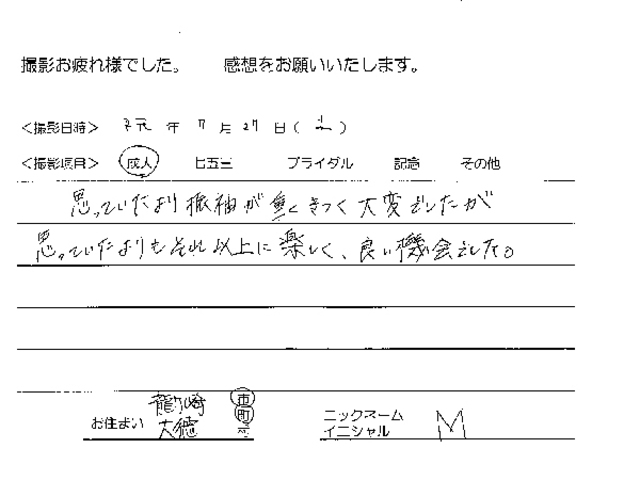 撮影お疲れ様でした。 感想をお願いいたします。
<撮影日時> R元 年 7 月 27 日( 土 )
<撮影項目> 成人 七五三 ブライダル 記念 その他
思っていたより振袖が重くきつく大変でしたが
思っていたよりもそれ以上に楽しく、良い機会でした。
お住まい 龍ヶ崎 市
大徳 町
ニックネーム
イニシャル M